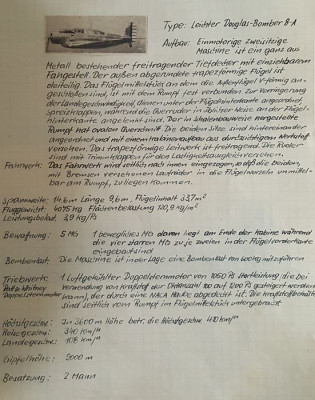 Type: Leichter Douglas-Bomber 8-A
Aufbau: Einmotorige zweisitzige
Maschine ist ein ganz aus
Metall bestehender freitragender Tiefdecker mit einziehbarem
Fahrgestell. Der außen abgerundete trapezförmige Flügel ist
dreiteilig. Das Flügelmittelstück an dem die Außenflügel V-förmig an-
geschlossen sind, ist mit dem Rumpf fest verbunden. Zur Verringerung
der Landegeschwindigkeit, dienen unter der Flügelhinterkante angeordnet,
Spreizklappen, während die Querruder in üblicher Weise an der Flügel-
hinterkante angelenkt sind. Der in Schalenbauweise hergestellte
Rumpf hat ovalen Querschnitt. Die beiden Sitze sind hintereinander
angeordnet und mit einem Kabinenaufbau aus durchsichtigem Werkstoff
versehen. Das trapezförmige Leitwerk ist freitragend. Die Ruder
sind mit Trimmklappen für den Lastigkeitsausgleich versehen.
Fahrwerk: Das Fahrwerk wird seitlich nach innen eingezogen, so daß die beiden,
mit Bremsen versehenen Laufräder in die Flügelwurzeln unmittel-
bar am Rumpf, zu liegen kommen.
Spannweite: 14,6 m Länge 9,6 m, Flügelinhalt 33,7 m²
Fluggewicht: 4075 kg Flächenbelastung 120,9 kg/m²
Leistungsbelast. 3,9 kg/PS
Bewaffnung: 5 MG 1 bewegliches MG davon liegt am Ende der Kabine während
die vier starren MG zu je zweien in der Flügelvorderkante
eingebaut sind
Bombenlast: Die Maschine ist in der Lage eine Bombenlast von 600 kg mitzuführen
Triebwerk: 1 Luftgekühlter Doppelsternmotor von 1050 PS Startleistung die bei
Pratt & Whitney Verwendung von Kraftstoff der Oktanzahl 100 auf 1200 PS gesteigert werden
Doppelsternmotor kann, der durch eine NACA Haube abgedeckt ist. Die Kraftstoffbehälter
sind seitlich vom Rumpf im Flügelmittelstück untergebracht.
Höchstgeschw.: In 3600 m Höhe betr. die Höchstgeschw. 410 km/h
Reisegeschw.: 340 km/h
Landegeschw.: 108 km/h
Gipfelhöhe: 9000 m
Besatzung: 2 Mann